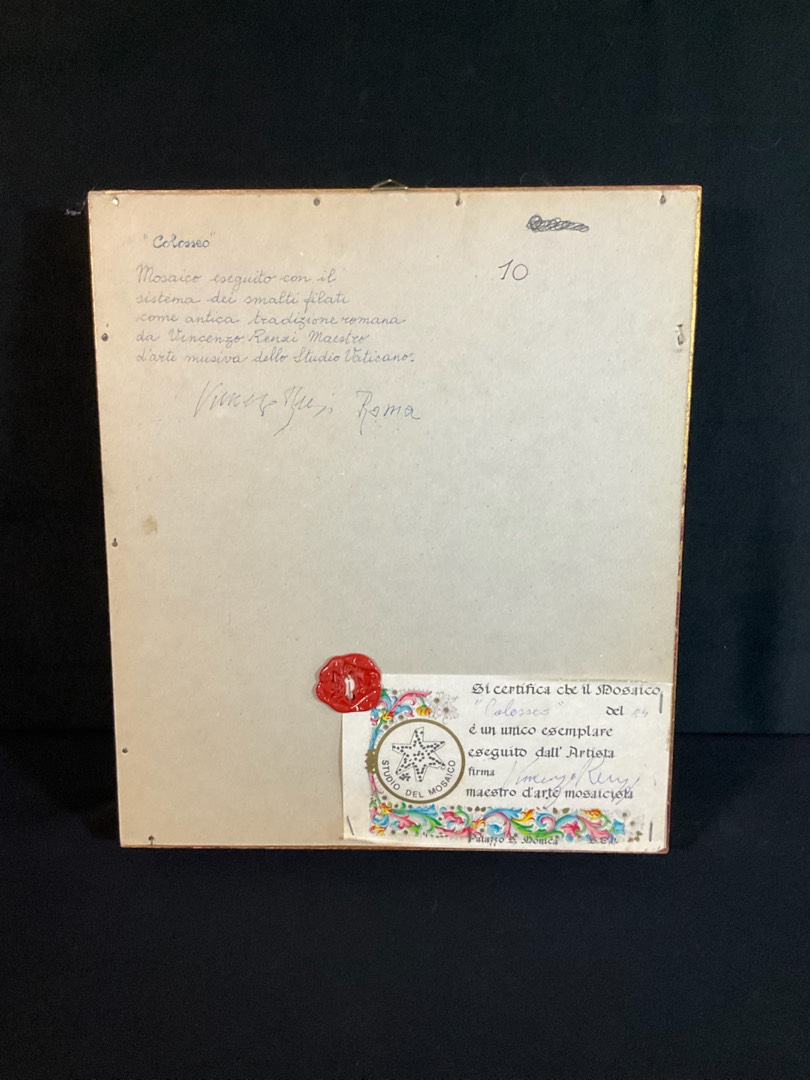 "Colosseo"
10
Mosaico eseguito con il
sistema dei smalti filati
come antica tradizione romana
da Vincenzo Renzi Maestro
d'arte musiva dello Studio Vaticano.
Vincenzo Renzi Roma
Si certifica che il Mosaico
"Colosseo" del 84
é un unico esemplare
eseguito dall'Artista
firma Vincenzo Renzi
maestro d'arte mosaicista
STUDIO DEL MOSAICO
Palazzo S. Monica